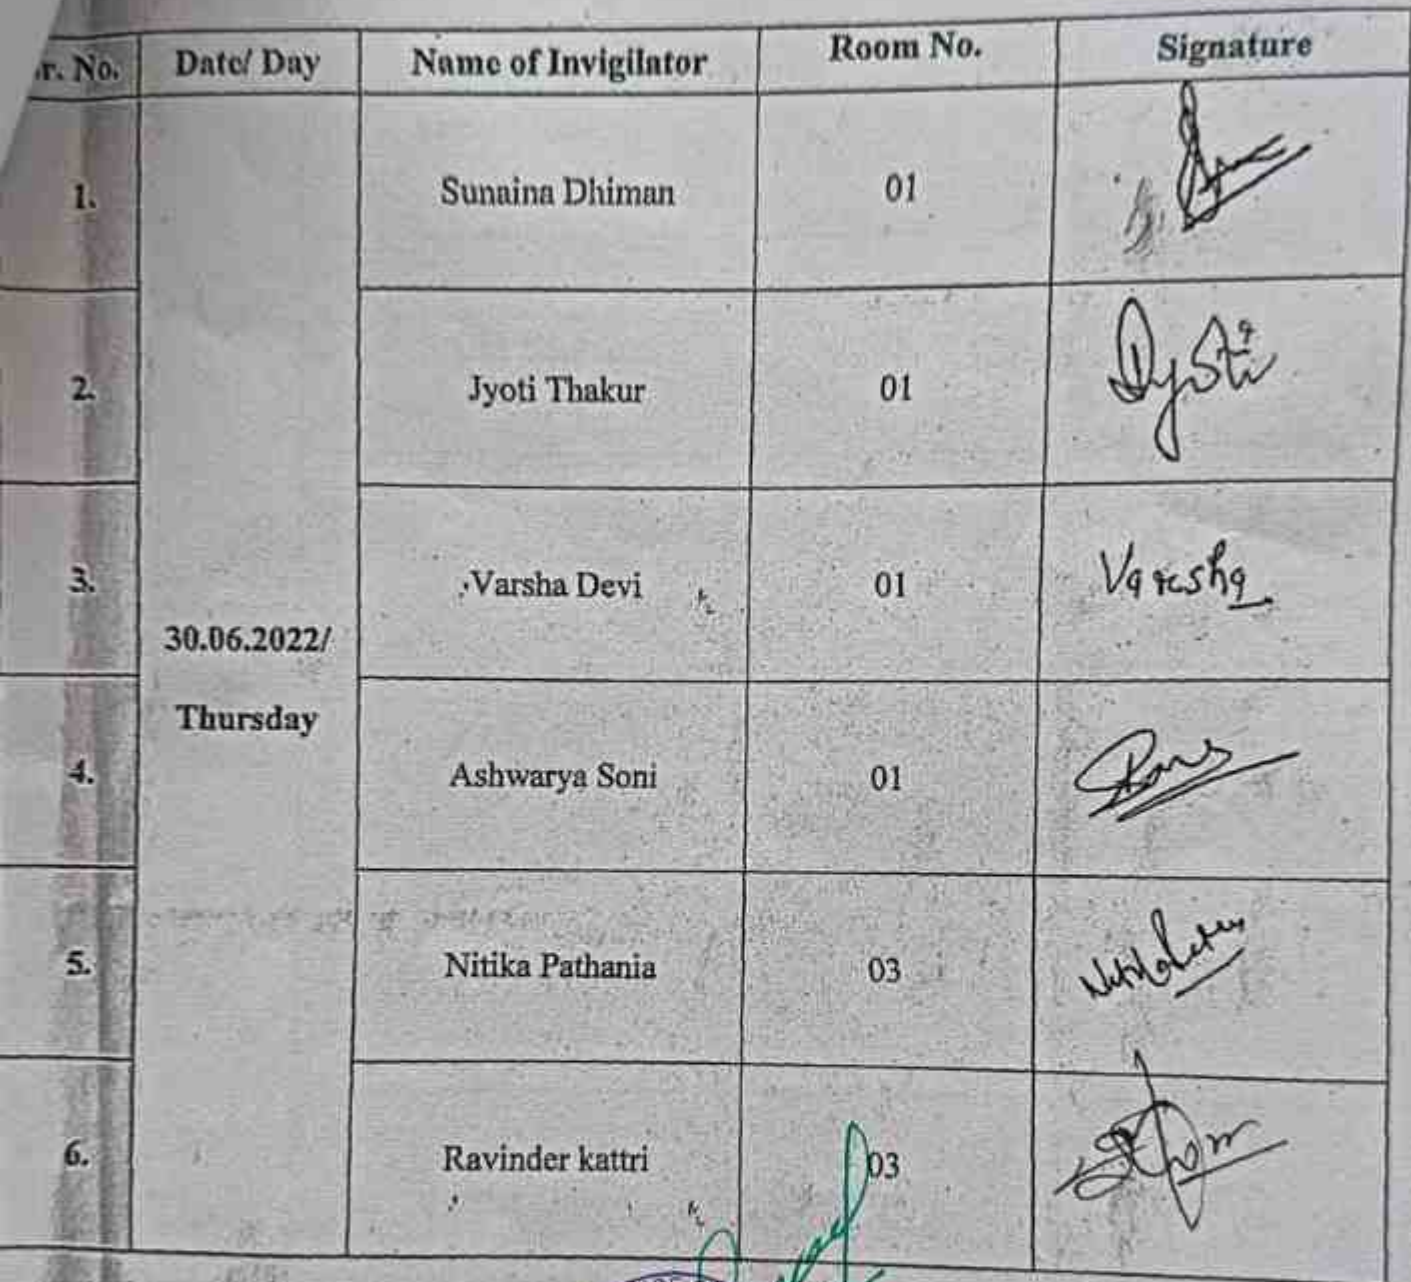 r. No. Date/ Day Name of Invigilator Room No. Signature
1. Sunaina Dhiman 01
2. Jyoti Thakur 01 Jyoti
3. Varsha Devi 01 Varsha
30.06.2022/
Thursday
4. Ashwarya Soni 01
5. Nitika Pathania 03
6. Ravinder kattri 03